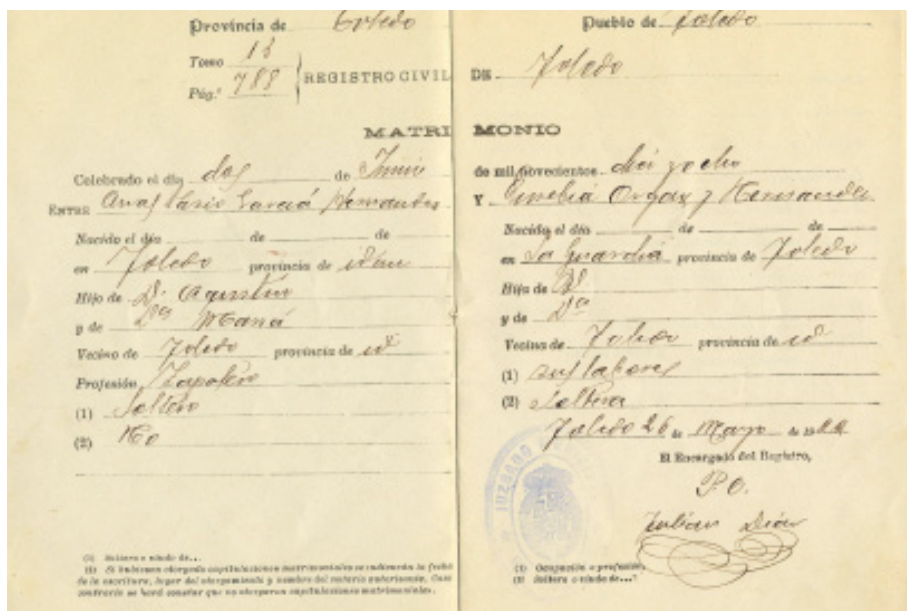 Provincia de Toledo
Tomo 13
Pág.ª 788
REGISTRO CIVIL
MATRI
Celebrado el día dos de Junio
ENTRE García Hernandez
Nacido el día de de
en Toledo provincia de idem
Hijo de D. Agustin
y de Dª María
Vecino de Toledo provincia de id
Profesión Zapatero
(1) Soltero
(2) No
(1) Soltero o viudo de...
(2) Si hubiesen otorgado capitulaciones matrimoniales se indicarán la fecha
de la escritura, lugar del otorgamiento y nombre del notario autorizante. Caso
contrario se hará constar que no otorgaron capitulaciones matrimoniales.
Pueblo de Toledo
DE Toledo
MONIO
de mil novecientos diez y ocho
Y Orgaz y Hernandez
Nacida el día de de
en La Guardia provincia de Toledo
Hija de D.
y de Dª
Vecina de Toledo provincia de id
(1) sus labores
(2) Soltera
Toledo 26 de Mayo de 19
El Encargado del Registro,
P.O.
Julian
JUZGADO
(1) Ocupación o profesión.
(2) Soltera o viuda de...